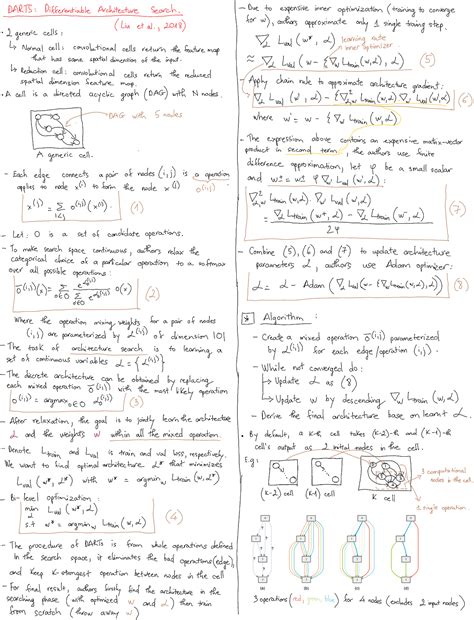 DARTS: Differentiable Architecture Search
(Liu et al., 2018)
- 2 generic cells:
↳ Normal cell: convolutional cells return the feature map
that has same spatial dimension of the input.
↳ Reduction cell: convolutional cells return the reduced
spatial dimension feature map.
- A cell is a directed acyclic graph (DAG) with N nodes.
DAG with 5 nodes
A generic cell.
- Each edge connects a pair of nodes (i,j) is a operation
applies to node x^(i) to form the node x^(j) o^(i,j)
x^(j) = Σ_{i<j} o^(i,j)(x^(i)) (1)
- Let: O is a set of candidate operations.
- To make search space continuous, authors relax the
categorical choice of a particular operation to a softmax
over all possible operations:
(2)
Where the operation mixing weights for a pair of nodes
(i,j) are parameterized by α^(i,j) of dimension |O|
- The task of architecture search is to learning a
set of continuous variables α = {α^(i,j)}
- The discrete architecture can be obtained by replacing
each mixed operation ō^(i,j) with the most likely operation:
o^(i,j) = argmax_{o∈O} α_o^(i,j) (3)
- After relaxation, the goal is to jointly learn the architecture
α and the weights w within all the mixed operation.
- Denote L_train and L_val is train and val loss, respectively.
We want to find optimal architecture α* that minimizes
L_val(w*, α*) with w* = argmin_w L_train(w, α*)
- Bi-level optimization:
min_α L_val(w*, α)
s.t w* = argmin_w L_train(w, α) (4)
- The procedure of DARTs is from whole operations defined
in the search space, it eliminates the bad operations (edge)
and keep k-strongest operation between nodes in the cell
- For final result, authors firstly find the architecture in the
searching phase (with optimized w and α) then train
from scratch (throw away w)
- Due to expensive inner optimization (training to converge
for w), authors approximate only 1 single training step.
∇_α L_val(w*, α) learning rate
inner optimizer
≈ ∇_α L_val(w - ξ∇_w L_train(w,α), α) (5)
- Apply chain rule to approximate architecture gradient:
(6)
where w' = w - ξ∇_w L_train(w,α)
- The expression above contains an expensive matrix-vector
product in second term, the authors use finite
difference approximation, let
be a small scalar
(7)
- Combine (5), (6) and (7) to update architecture
parameters α, authors use Adam optimizer:
α = α - Adam(∇_α L_val(w - ξ∇_w L_train(w,α), α)) (8)
Algorithm:
- Create a mixed operation ō^(i,j) parameterized
by α^(i,j) for each edge/operation (i,j)
- While not converged do:
↳ Update α as (8)
↳ Update w by descending ∇_w L_train(w, α)
- Derive the final architecture base on learnt α.
- By default, a K-th cell takes (K-2)-th and (K-1)-th
cell's output as 2 initial nodes in the cell.
E.g:
3 computational
nodes in the cell.
(K-2) cell (K-1) cell K cell
1 single operation
(a) (b) (c) (d)
3 operations (red, green, blue) for 4 nodes (excludes 2 input nodes)